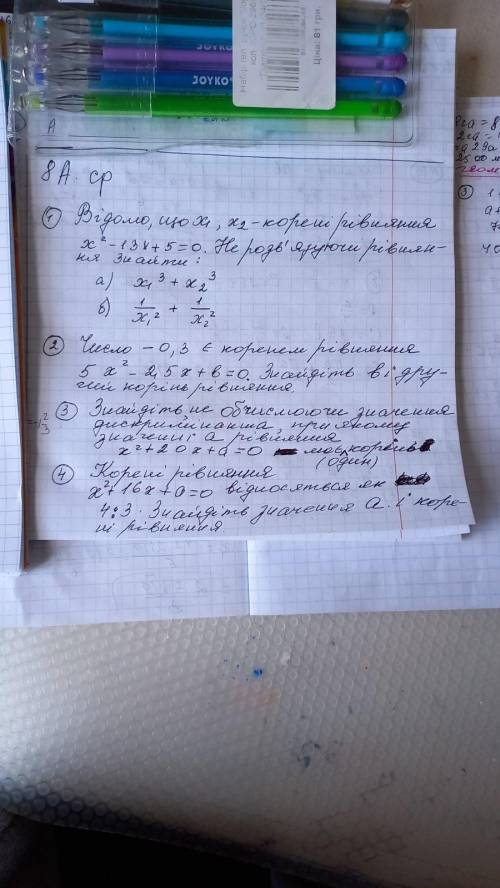 JOYKO
JOYKO
Ціна: 81 грн.
A
8А. ср
① Відомо, що x₁, x₂ - корені рівняння
x² - 13x + 5 = 0. Не розв'язуючи рівнян-
ня знайти:
а) x₁³ + x₂³
б) 1/x₁² + 1/x₂²
② Число - 0,3 є коренем рівняння
5x² - 2,5x + в = 0. Знайдіть в і дру-
гий корінь рівняння.
③ Знайдіть не обчислюючи значення
дискримінанта, при якому
значенні а рівняння
x² + 20x + a = 0 має корень
(один)
④ Корені рівняння
x² + 16x + a = 0 відносяться як
4:3. Знайдіть значення а і коре-
ні рівняння.